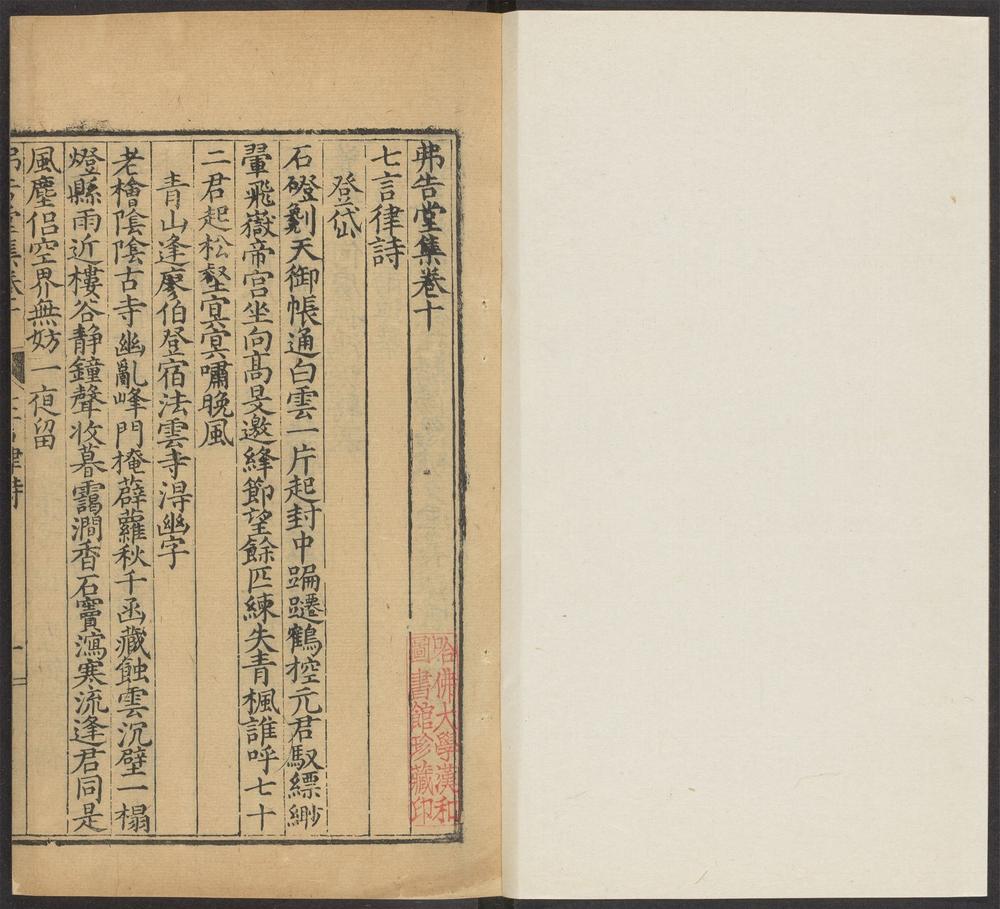 弗告堂集卷十
七言律詩
登岱
石磴劖天御帳通白雲一片起封中蹁躚鶴控元君馭縹緲
翬飛嶽帝宮坐向高旻邀絳節望餘匹練失青楓誰呼七十
二君起松壑冥冥嘯晚風
青山逢廖伯登宿法雲寺得幽字
老檜陰陰古寺幽亂峰門掩薜蘿秋千函藏蝕雲沉壁一榻
燈縣雨近樓谷靜鐘聲收暮靄澗香石竇瀉寒流逢君同是
風塵侶空界無妨一夜留
哈佛大學漢和
圖書館珍藏印